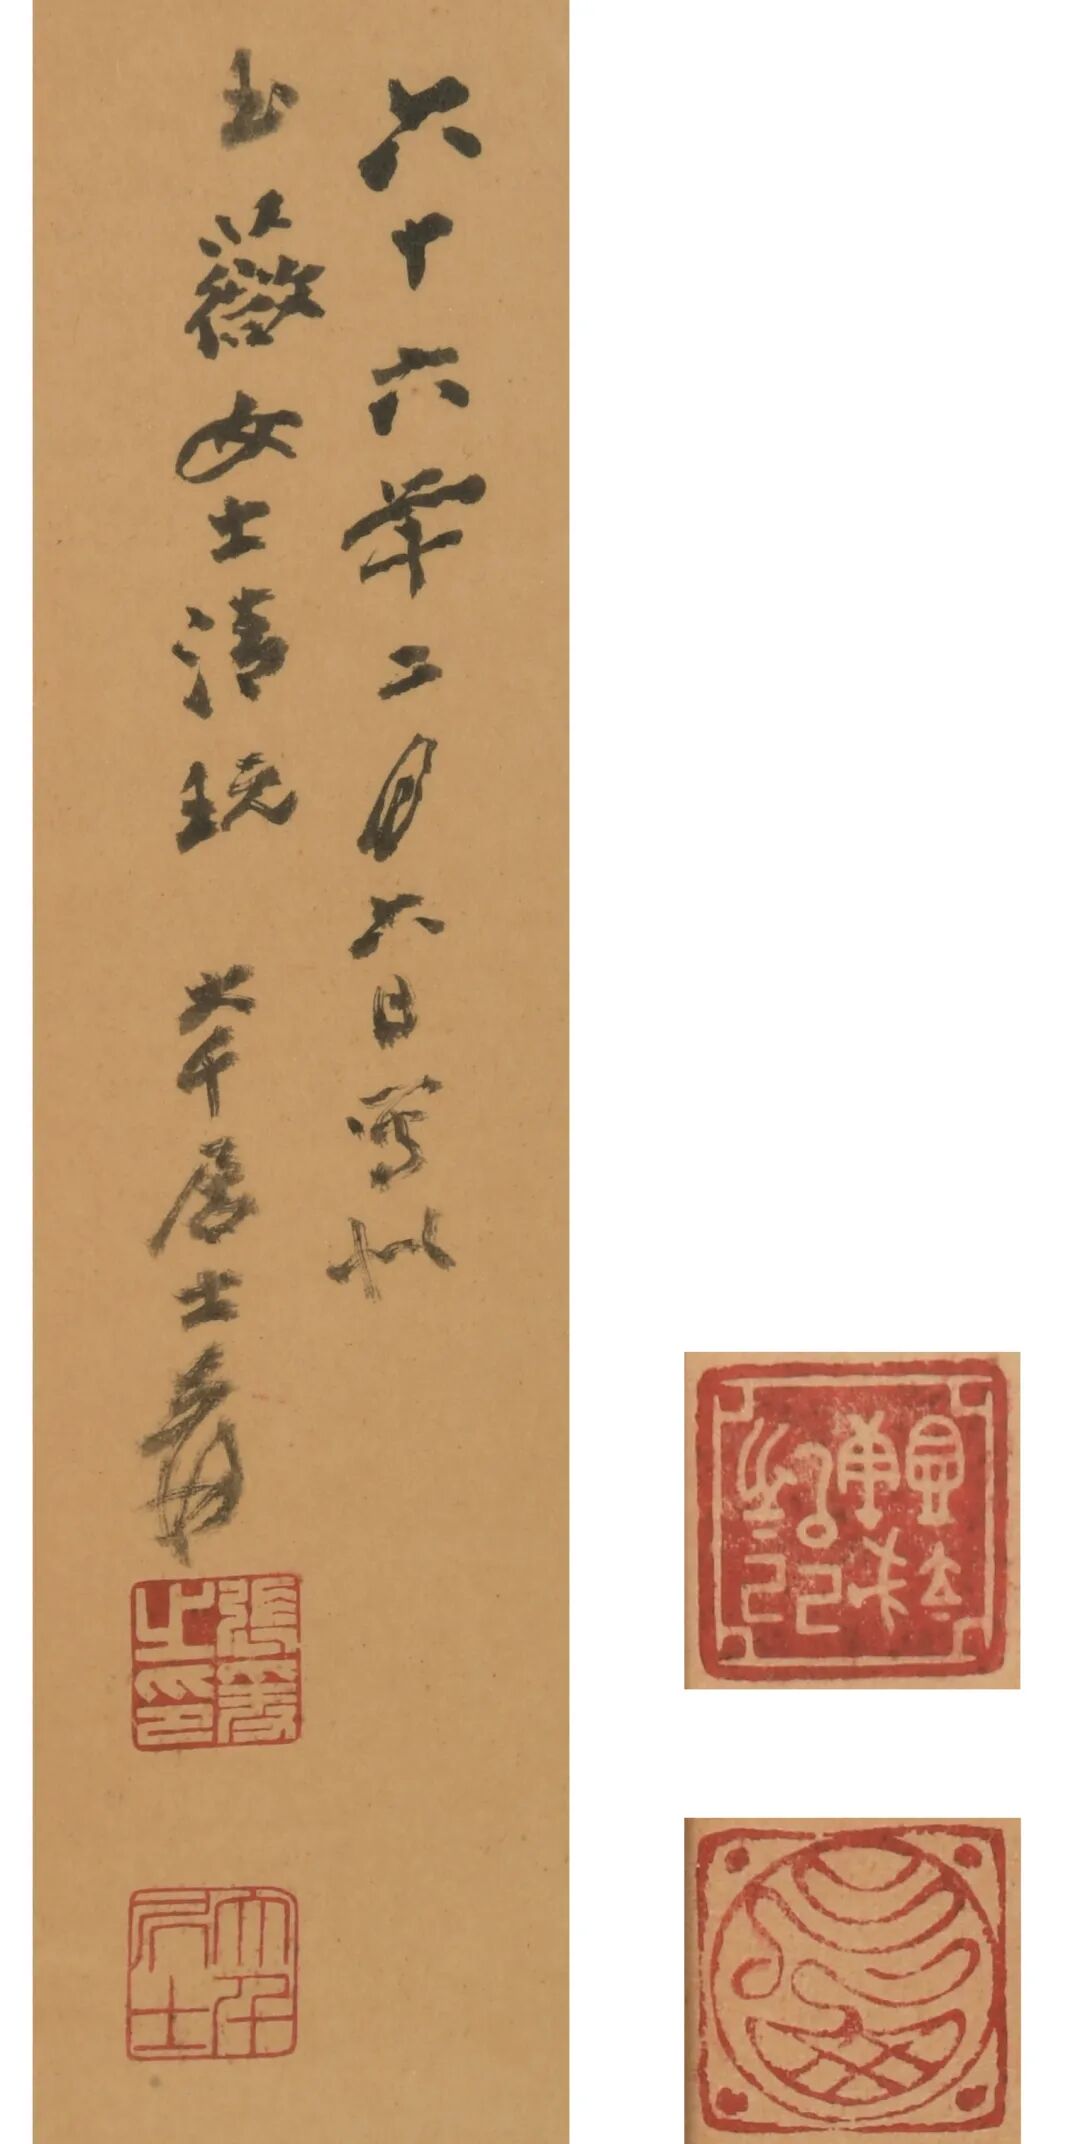 六十六年二月六日寫似
玉薇女士清玩 大千居士爰
張爰之印
大千居士